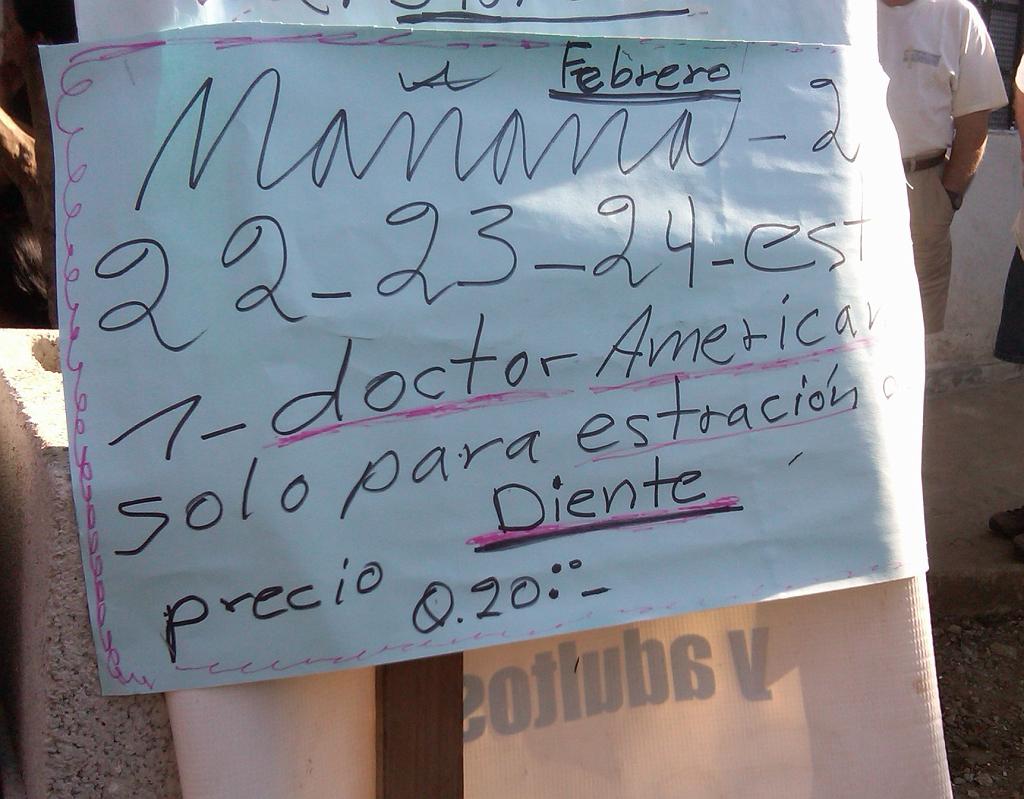 Febrero
Mañana - 2
22 - 23 - 24 - est
1 - doctor American
solo para estración
Diente
precio Q.20:-
y adultos